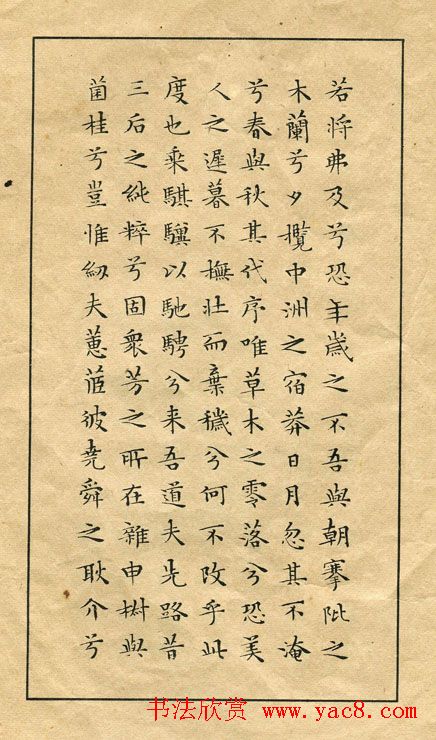 若將弗及兮恐年歲之不吾與朝搴阰之
木蘭兮夕攬中洲之宿莽日月忽其不淹
兮春與秋其代序唯草木之零落兮恐美
人之遲暮不撫壯而棄穢兮何不改乎此
度也乘騏驥以馳騁兮来吾道夫先路昔
三后之純粹兮固衆芳之所在雜申椒與
菌桂兮豈惟紉夫蕙茝彼堯舜之耿介兮
书法欣赏 www.yac8.com